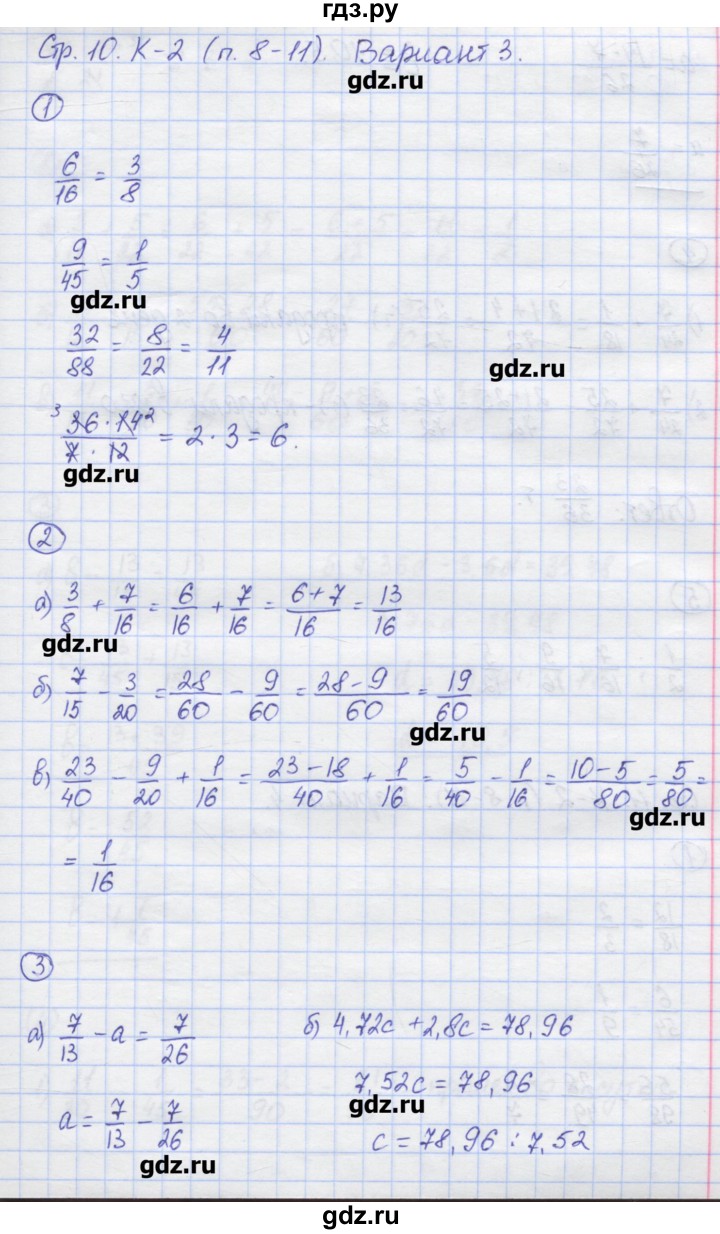 гдз.ру
Стр. 10. К-2 (п. 8-11). Вариант 3.
gdz.ru
1
6/16 = 3/8
9/45 = 1/5
gdz.ru
32/88 = 8/22 = 4/11
gdz.ru
³ 36 · 14² / 7 · 12 = 2 · 3 = 6.
gdz.ru
2
а) 3/8 + 7/16 = 6/16 + 7/16 = 6+7/16 = 13/16
gdz.ru
б) 7/15 - 3/20 = 28/60 - 9/60 = 28-9/60 = 19/60
gdz.ru
в) 23/40 - 9/20 + 1/16 = 23-18/40 + 1/16 = 5/40 - 1/16 = 10-5/80 = 5/80 =
gdz.ru
= 1/16
3
а) 7/13 - a = 7/26
a = 7/13 - 7/26
gdz.ru
б) 4,72c + 2,8c = 78,96
7,52c = 78,96
gdz.ru
c = 78,96 : 7,52
gdz.ru